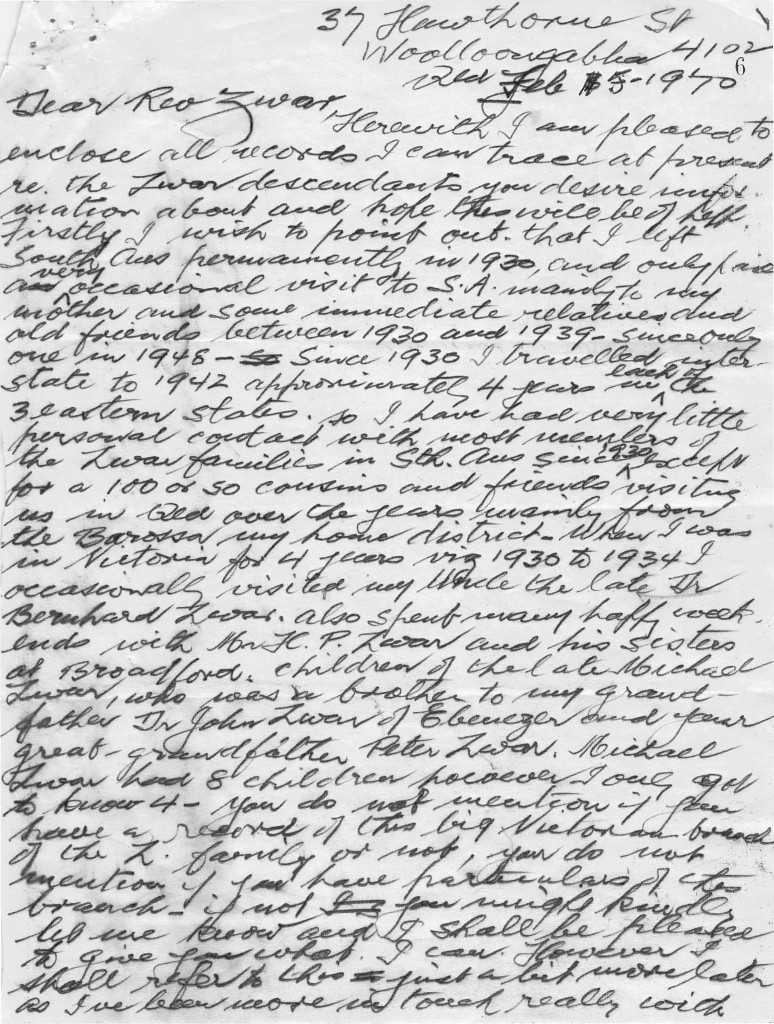 37 Hawthorne St
Woolloongabba 4102
6
Qld Feb 5-1970
Dear Rev Zwar,
Herewith I am pleased to
enclose all records I can trace at present
re. the Zwar descendants you desire infor-
mation about and hope this will be of help.
Firstly I wish to point out that I left
South Aus permanently in 1930, and only
very
occasional visit to S.A. mainly to my
mother and some immediate relatives and
old friends between 1930 and 1939 - since only
one in 1948 - Since 1930 I travelled inter-
state to 1942 approximately 4 years in each of the
3 eastern states. so I have had very little
personal contact with most members of
the Zwar families in Sth. Aus since 1930 except
for a 100 or so cousins and friends visiting
us in Qld over the years mainly from
the Barossa my home district - When I was
in Victoria for 4 years viz 1930 to 1934 I
occasionally visited my Uncle the late Dr
Bernhard Zwar. also spent many happy week
ends with Mr H. P. Zwar and his sisters
at Broadford. children of the late Michael
Zwar, who was a brother to my grand-
father Johann Zwar of Ebenezer and your
great-grandfather Peter Zwar. Michael
Zwar had 8 children however I only got
to know 4 - you do not mention if you
have a record of this big Victorian branch
of the Z. family or not, you do not
mention if you have particulars of this
branch - if not you might kindly
let me know and I shall be pleased
to give you what I can. However I
shall refer to this - just a bit more later
as I've been more in touch really with